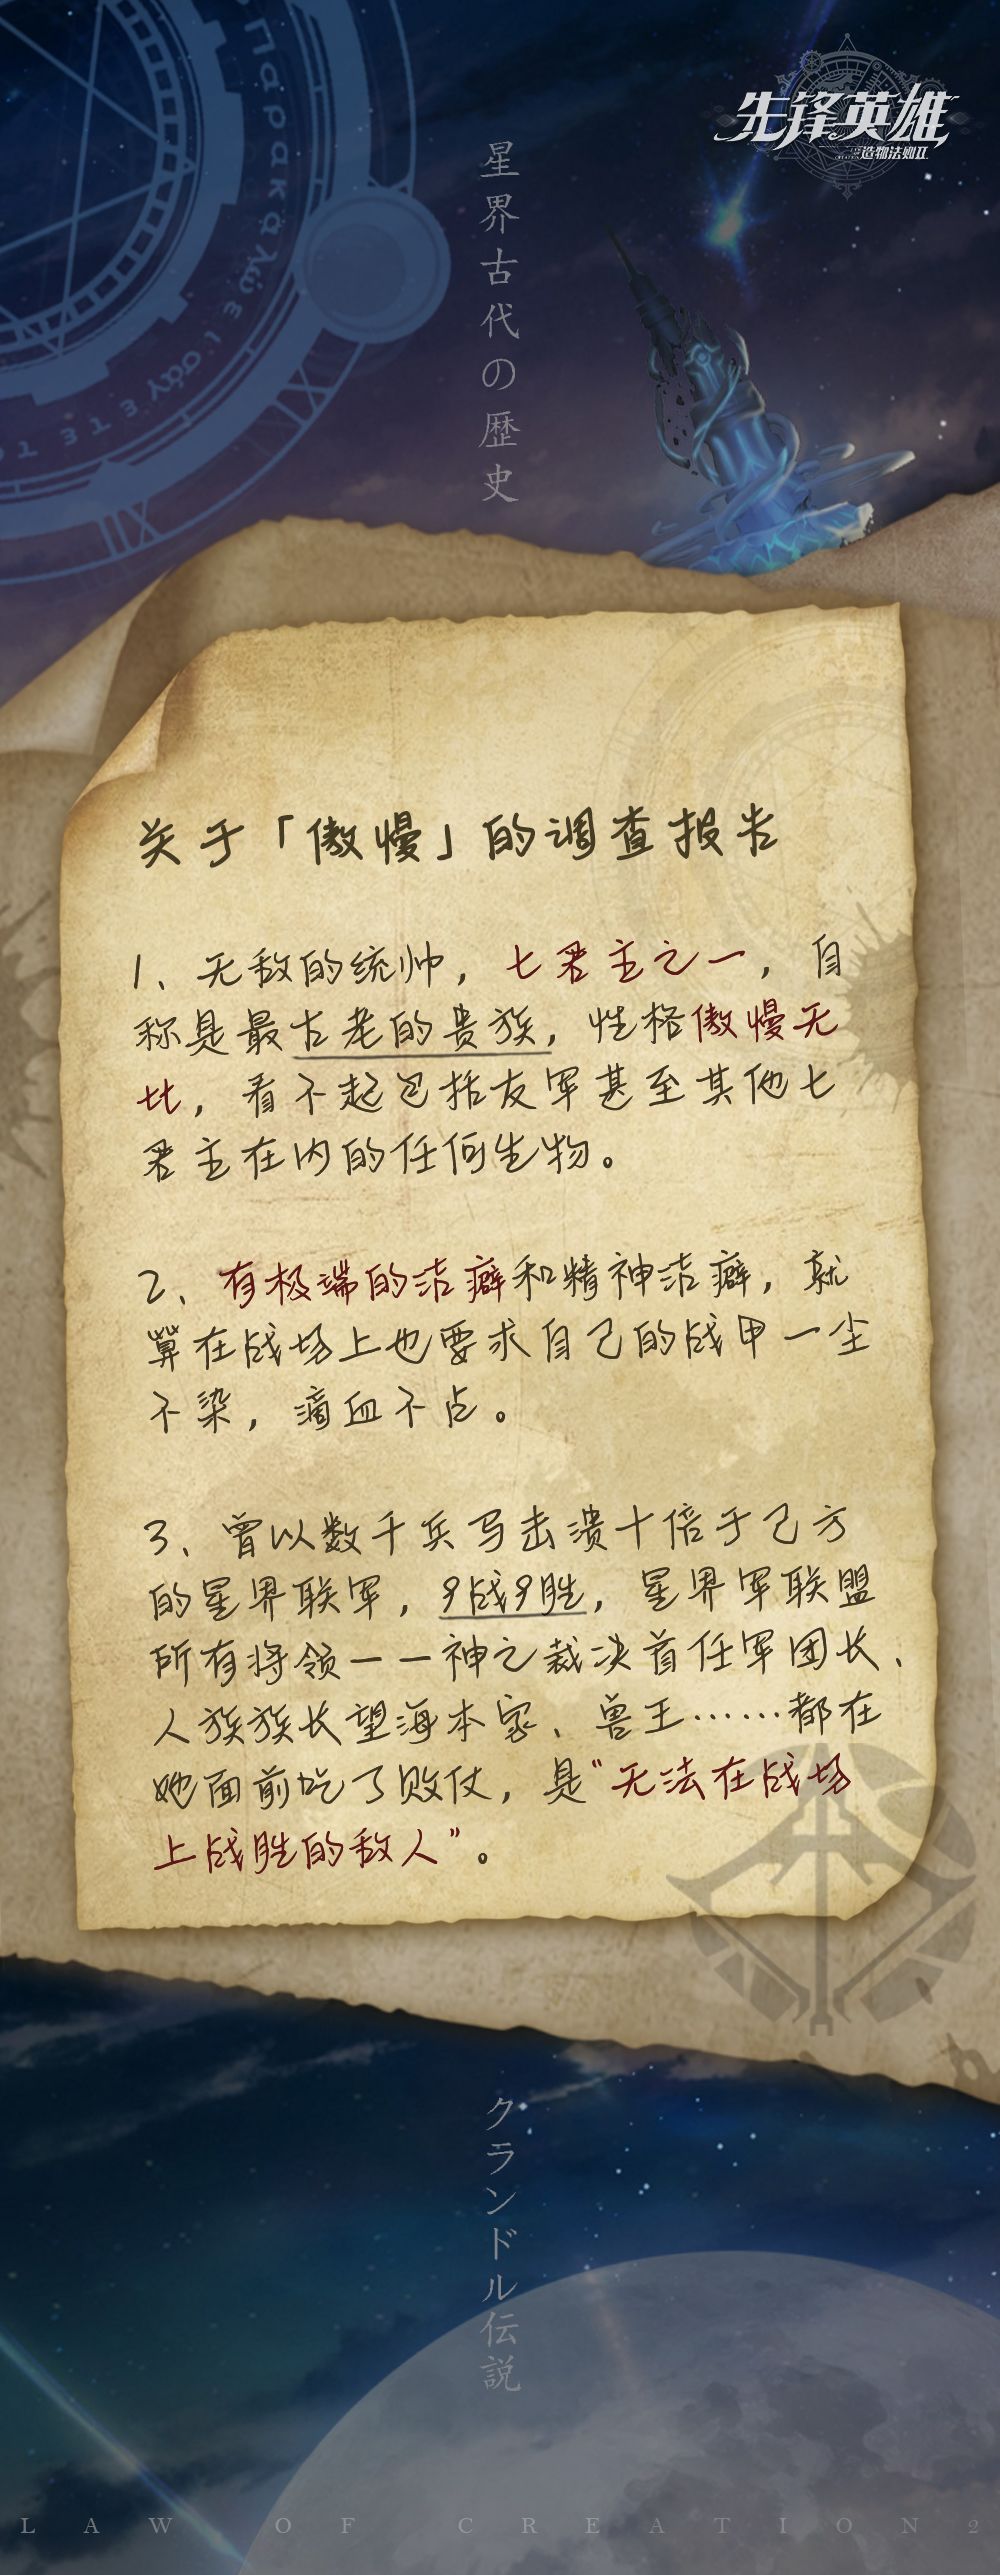 先锋英雄
造物法则II
星界古代の歴史
关于「傲慢」的调查报告
1、无敌的统帅，七君主之一，自
称是最古老的贵族，性格傲慢无
比，看不起包括友军甚至其他七
君主在内的任何生物。
2、有极端的洁癖和精神洁癖，就
算在战场上也要求自己的战甲一尘
不染，滴血不占。
3、曾以数千兵马击溃十倍于己方
的星界联军，9战9胜，星界军联盟
所有将领——神之裁决首任军团长、
人族族长望海本家、兽王……都在
她面前吃了败仗，是“无法在战场
上战胜的敌人”。
クランドル伝説
LAW OF CREATION2